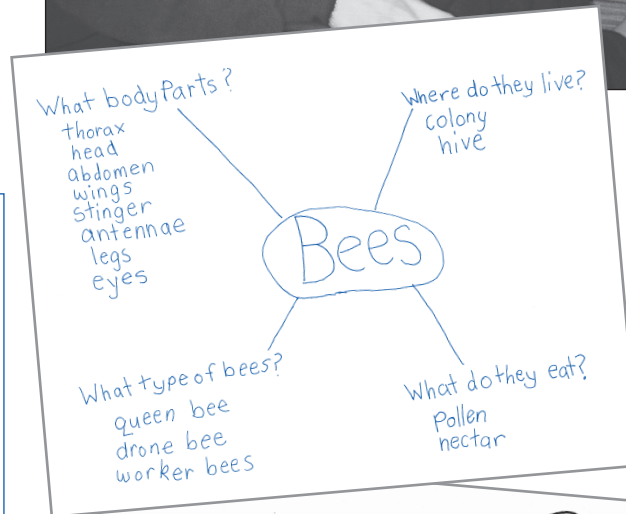 What body Parts?
thorax
head
abdomen
wings
stinger
antennae
legs
eyes
Where do they live?
colony
hive
Bees
What type of bees?
queen bee
drone bee
worker bees
What do they eat?
Pollen
nectar